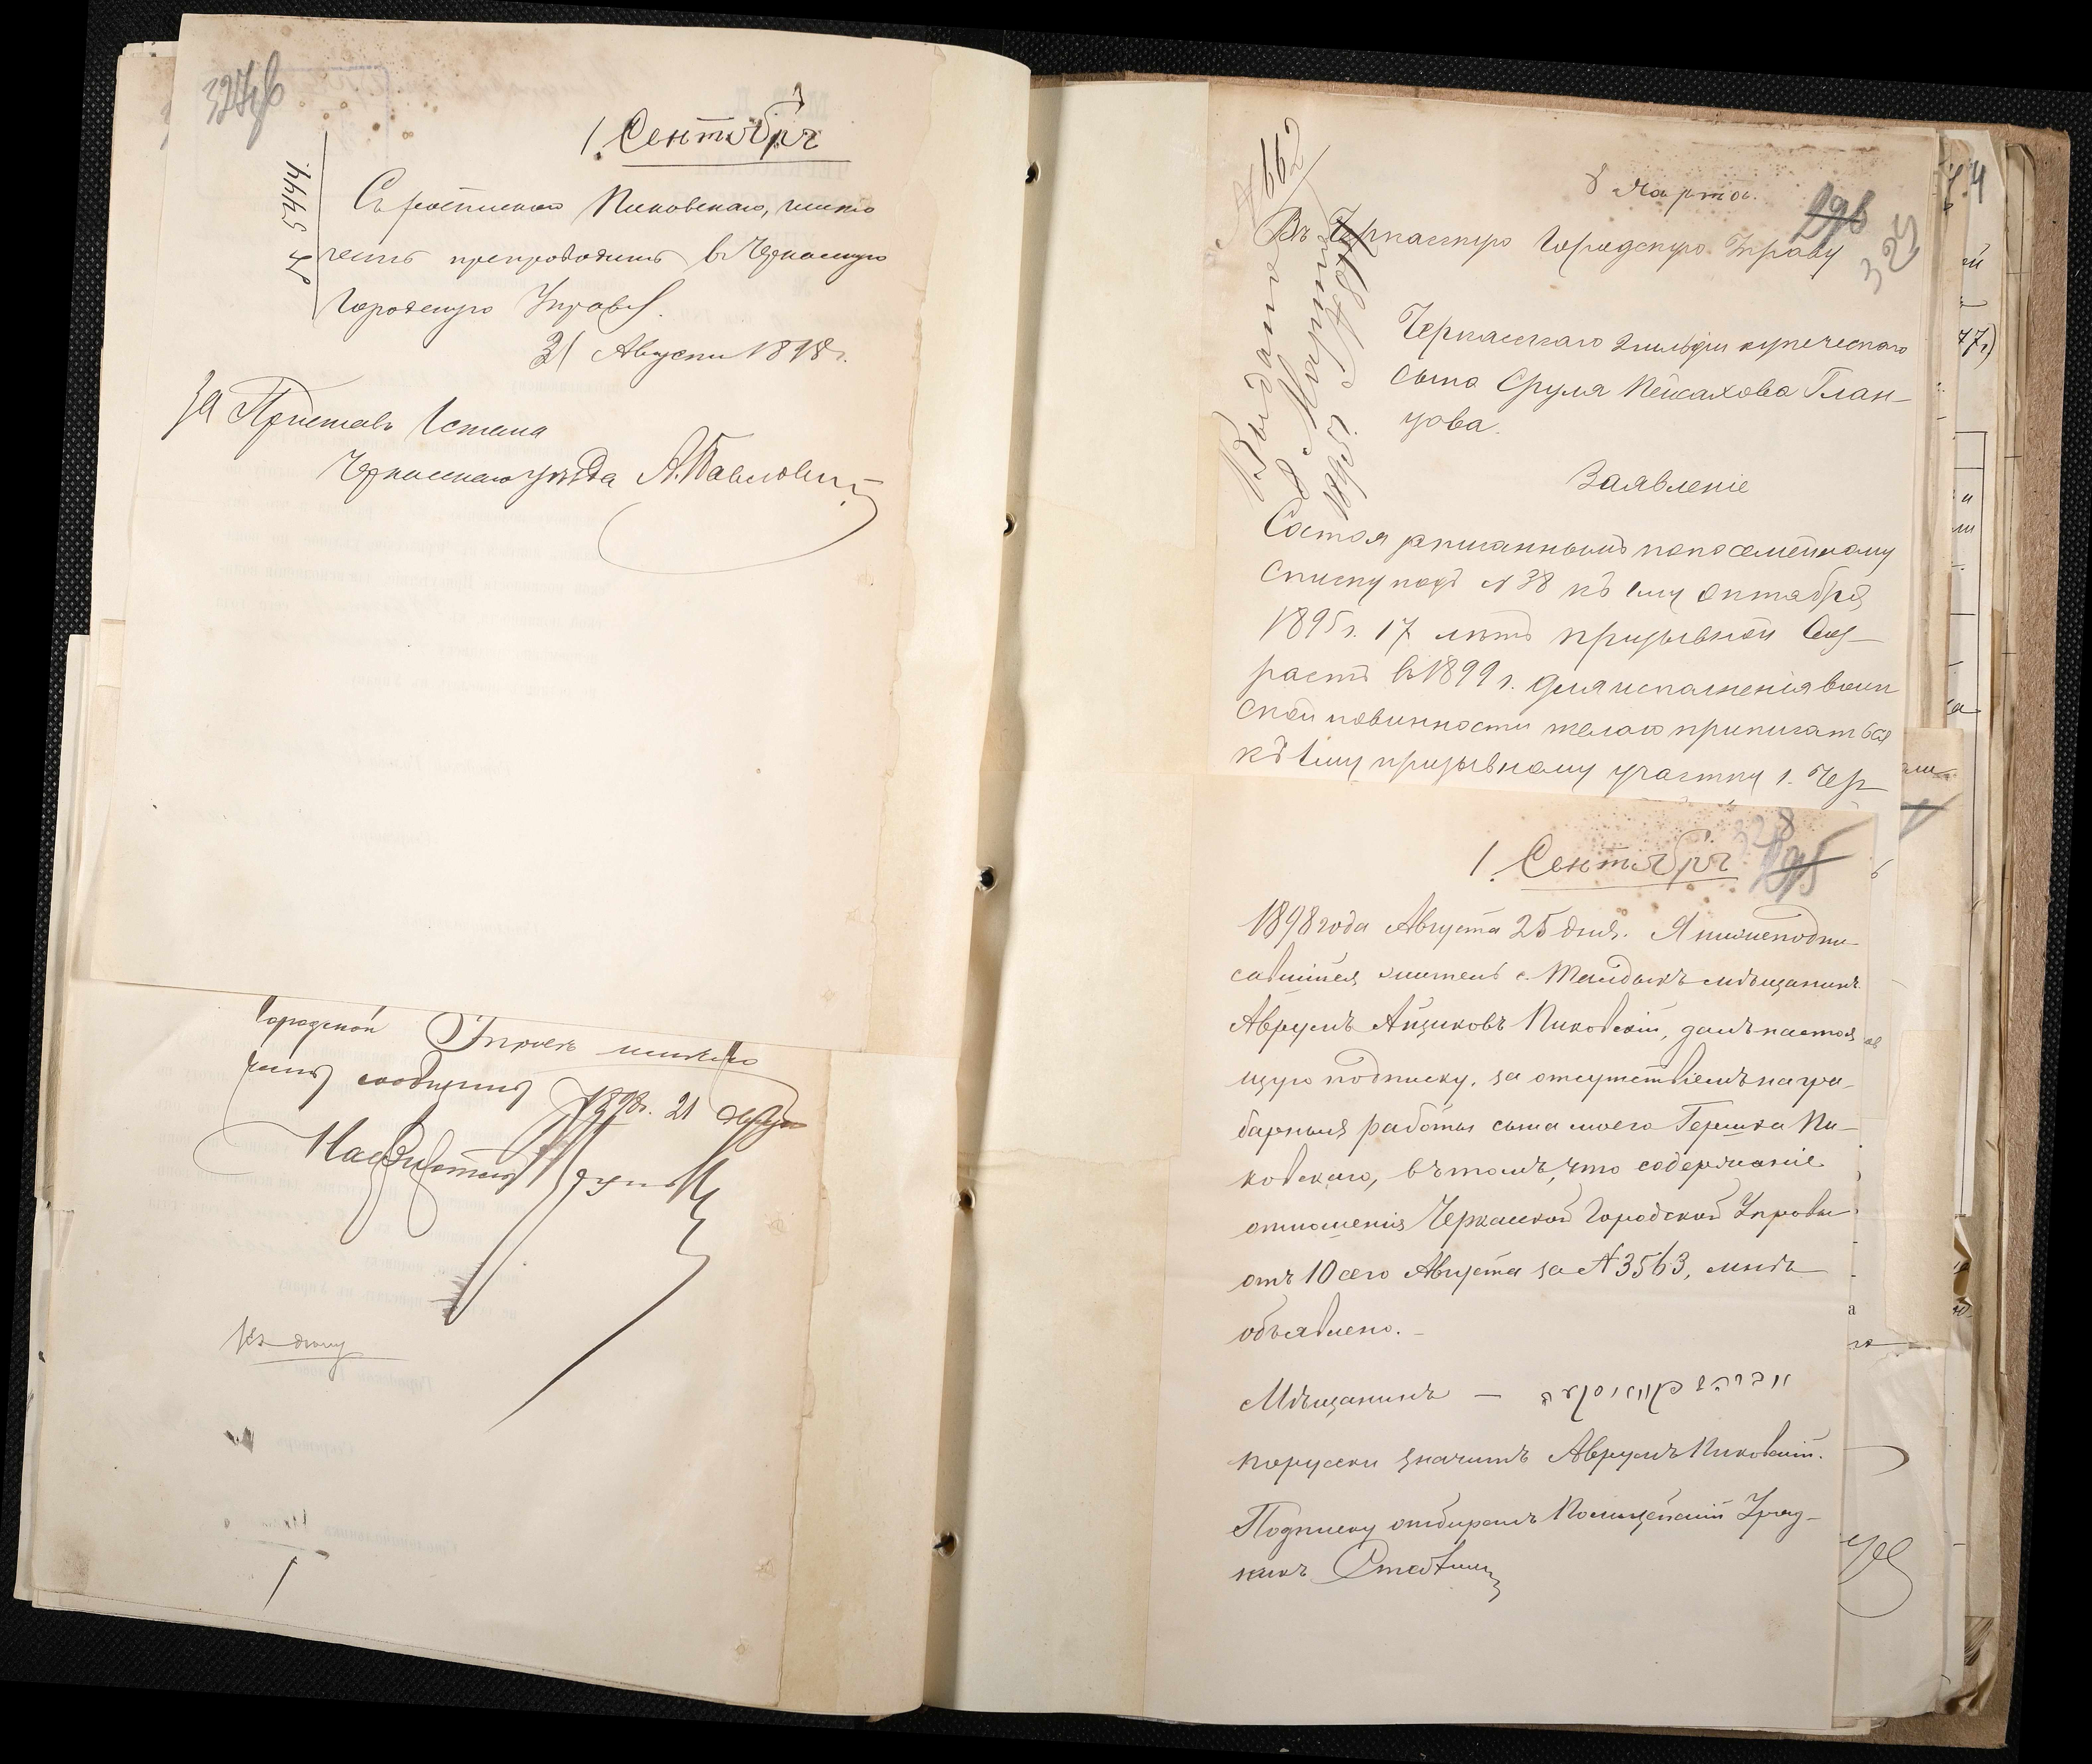 327об
1 Сентября
№ 5444
Съ роспискою Пиковскаго, имѣю
честь препроводить въ Черкасскую
Городскую Управу.
31 Августа 1898 г.
За Пристава 1 стана
Черкасскаго уѣзда А. Павловичъ
Городской Управѣ имѣю
честь сообщить 1898 г. 21
Къ дѣлу
№ 662
8 Марта.
296
325
Въ Черкасскую Городскую Управу
Выдано
8 Марта
1898 г. № 481
Черкасскаго 2 гильдіи купеческаго
сына Сруля Пейсахова Глан-
цова.
Заявленіе
Состоя записаннымъ по посемейному
списку подъ № 38 къ 1му Октября
1895 г. 17 лѣтъ призывной Воз-
растъ въ 1899 г. для исполненія воин
ской повинности желаю приписаться
къ 1му призывному участку г. Чер
328
295
1 Сентября
1898 года Августа 25 дня. Я нижеподпи-
савшійся житель с. Мѣщанинъ
Аврумъ Айзиковъ Пиковскій, далъ настоя
щую подписку, за отсутствіемъ на гра-
барныя работы сына моего Гершка Пи-
ковскаго, въ томъ, что содержаніе
отношенія Черкасской Городской Управы
отъ 10 сего Августа за № 3563, мнѣ
объявлено.
Мѣщанинъ —
порусски значитъ Аврумъ Пиковскій.
Подписку отбиралъ Полицейскій Уряд-
никъ